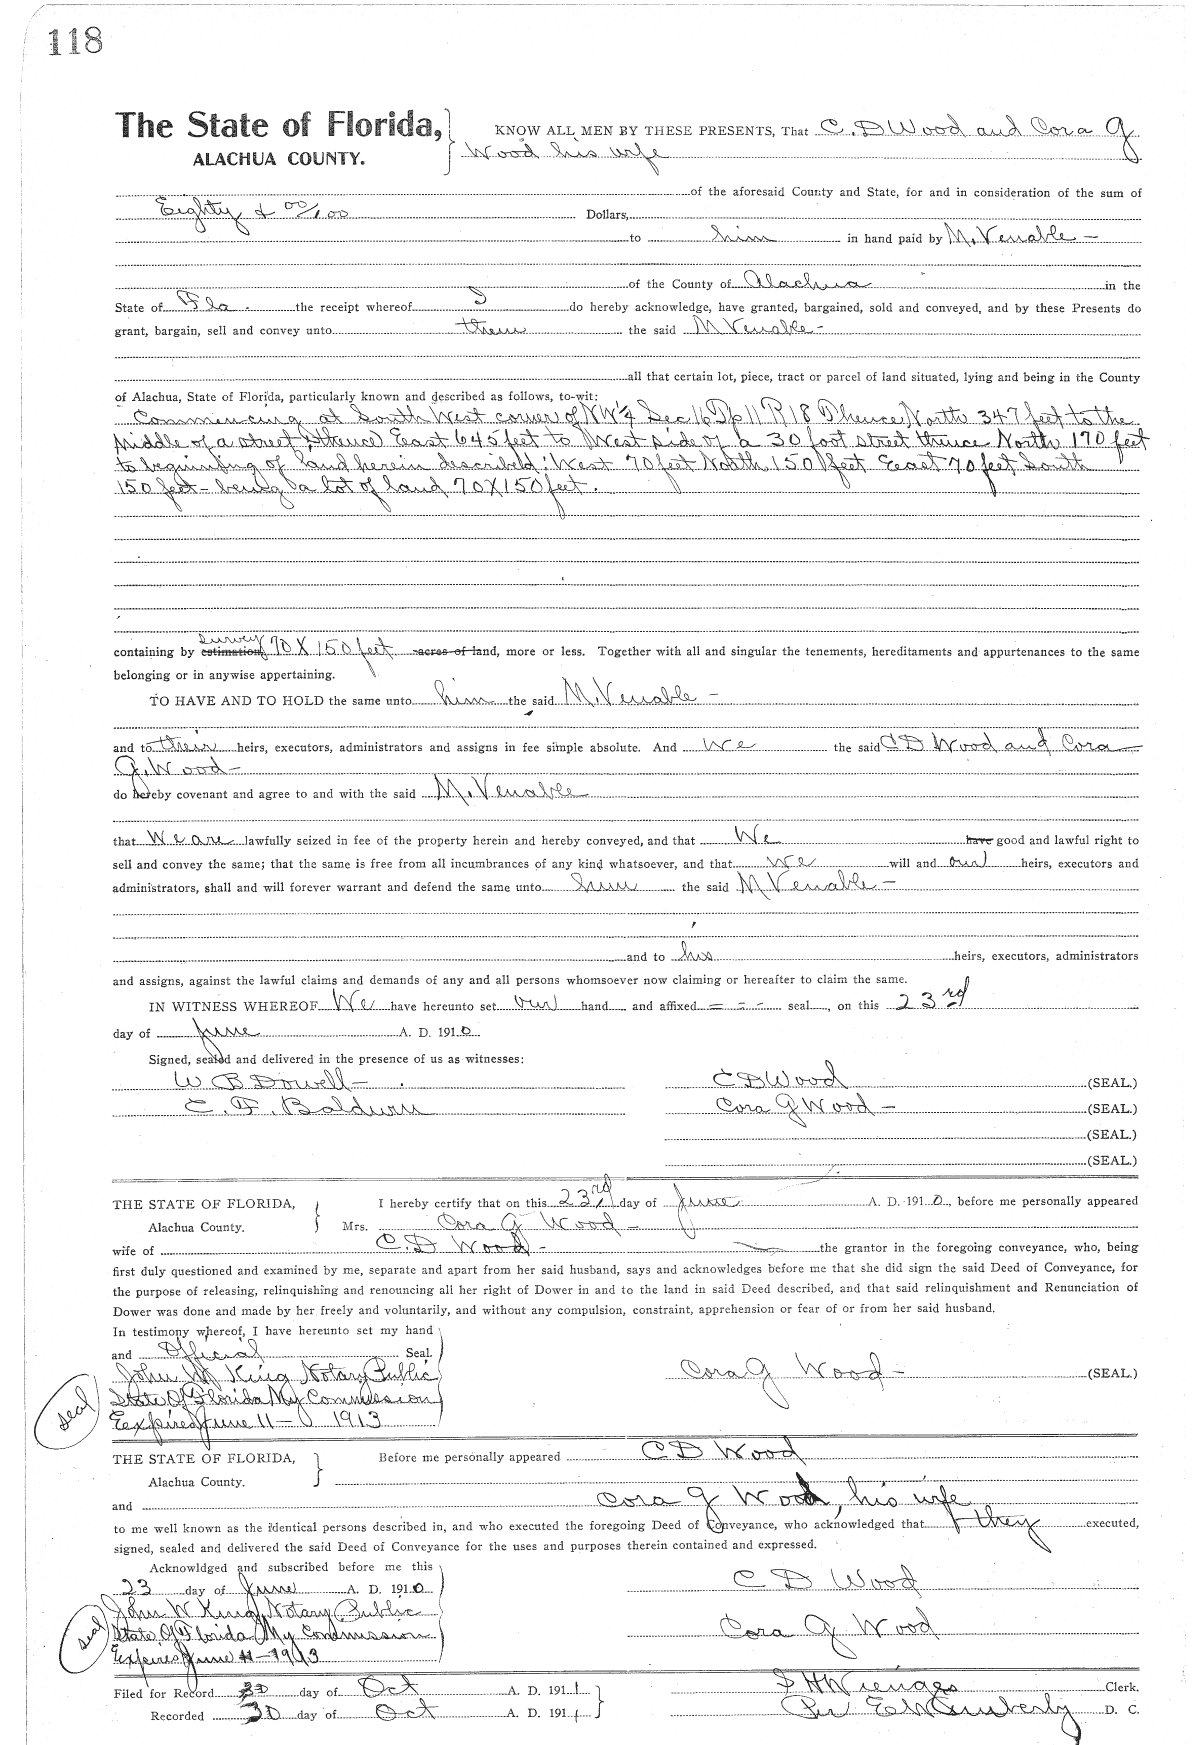 118
The State of Florida, KNOW ALL MEN BY THESE PRESENTS, That C. D Wood and Cora G
ALACHUA COUNTY. Wood his wife
of the aforesaid County and State, for and in consideration of the sum of
Eighty & 00/100 Dollars,
to him in hand paid by M. Venable -
of the County of Alachua in the
State of Fla. the receipt whereof I do hereby acknowledge, have granted, bargained, sold and conveyed, and by these Presents do
grant, bargain, sell and convey unto them the said M Venable -
all that certain lot, piece, tract or parcel of land situated, lying and being in the County
of Alachua, State of Florida, particularly known and described as follows, to-wit:
Commencing at South West corner of NW¼ Sec 16 Tp 11 R 18 Thence North 347 feet to the
Middle of a street, thence East 645 feet to West side of a 30 foot street thence North 170 feet
to beginning of land herein described: West 70 feet North 150 feet Eeast 70 feet South
150 feet - being a lot of land 70X150 feet.
survey
containing by estimation 70 X 150 feet acres of land, more or less. Together with all and singular the tenements, hereditaments and appurtenances to the same
belonging or in anywise appertaining.
TO HAVE AND TO HOLD the same unto him the said M. Venable -
and to their heirs, executors, administrators and assigns in fee simple absolute. And We the said C D Wood and Cora
G. Wood -
do hereby covenant and agree to and with the said M. Venable
that We are lawfully seized in fee of the property herein and hereby conveyed, and that We have good and lawful right to
sell and convey the same; that the same is free from all incumbrances of any kind whatsoever, and that we will and our heirs, executors and
administrators, shall and will forever warrant and defend the same unto him the said M Venable -
and to his heirs, executors, administrators
and assigns, against the lawful claims and demands of any and all persons whomsoever now claiming or hereafter to claim the same.
IN WITNESS WHEREOF We have hereunto set our hand and affixed = - - seal, on this 23rd
day of June A. D. 1910
Signed, sealed and delivered in the presence of us as witnesses:
W B Dowell - C D Wood (SEAL.)
E. F. Baldwin Cora G Wood - (SEAL.)
(SEAL.)
(SEAL.)
THE STATE OF FLORIDA, I hereby certify that on this 23rd day of June A. D. 1910, before me personally appeared
Alachua County. Mrs. Cora G Wood -
wife of C. D Wood - the grantor in the foregoing conveyance, who, being
first duly questioned and examined by me, separate and apart from her said husband, says and acknowledges before me that she did sign the said Deed of Conveyance, for
the purpose of releasing, relinquishing and renouncing all her right of Dower in and to the land in said Deed described, and that said relinquishment and Renunciation of
Dower was done and made by her freely and voluntarily, and without any compulsion, constraint, apprehension or fear of or from her said husband.
In testimony whereof, I have hereunto set my hand
and Official Seal.
John W King Notary Public Cora G Wood - (SEAL)
seal State Of Florida My Commission
Eexpires June 11 - 1913
THE STATE OF FLORIDA, Before me personally appeared C D Wood
Alachua County.
and Cora G Wood, his wife
to me well known as the identical persons described in, and who executed the foregoing Deed of Conveyance, who acknowledged that they executed,
signed, sealed and delivered the said Deed of Conveyance for the uses and purposes therein contained and expressed.
Acknowldged and subscribed before me this
23 day of June A. D. 1910 C D Wood
John W King Notary Public
seal State Of Florida My Commission Cora G Wood
Expires June 11 - 1913
Filed for Record 30 day of Oct A. D. 1911 S H Wienges Clerk.
Recorded 30 day of Oct A. D. 1911 Per E W Kimberly D. C.